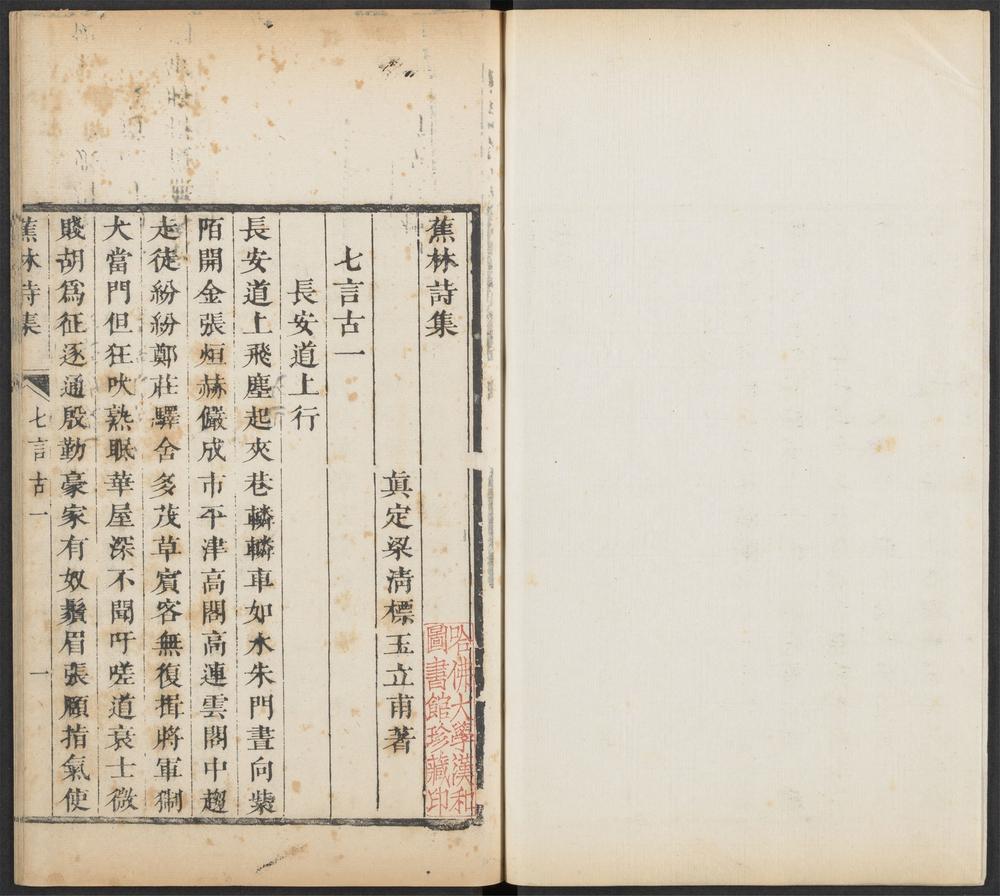 蕉林詩集
哈佛大學漢和
圖書館珍藏印
真定梁清標玉立甫著
七言古一
長安道上行
長安道上飛塵起夾巷轔轔車如水朱門晝向紫
陌開金張烜赫儼成市平津高閣高連雲閣中趨
走徒紛紛鄭莊驛舍多茂草賓客無復揖將軍猘
犬當門但狂吠熟眠華屋深不聞吁嗟道衰士微
賤胡為征逐通殷勤豪家有奴鬚眉張頤指氣使
蕉林詩集
七言古一
一